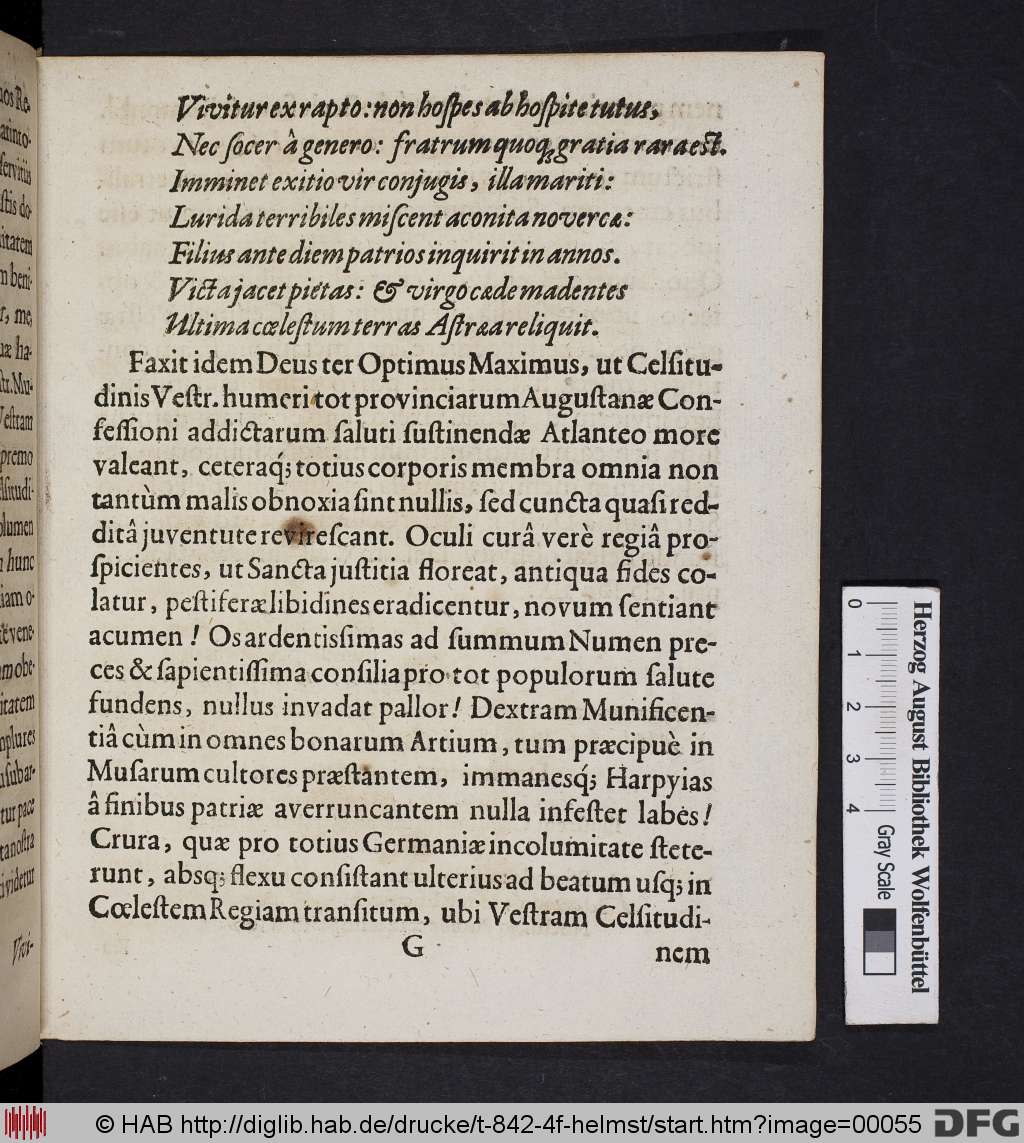 Vivitur ex rapto: non hoſpes ab hoſpite tutus,
Nec ſocer â genero: fratrum quoq; gratia rara eſt.
Imminet exitio vir conjugis, illa mariti:
Lurida terribiles miſcent aconita novercæ:
Filius ante diem patrios inquirit in annos.
Victa jacet pietas: & virgo cæde madentes
Ultima cœleſtum terras Aſtræa reliquit.
Faxit idem Deus ter Optimus Maximus, ut Celſitu-
dinis Veſtr. humeri tot provinciarum Auguſtanæ Con-
feſſioni addictarum ſaluti ſuſtinendæ Atlanteo more
valeant, ceteraq́; totius corporis membra omnia non
tantùm malis obnoxia ſint nullis, ſed cuncta quaſi red-
ditâ juventute revireſcant. Oculi curâ verè regiâ pro-
ſpicientes, ut Sancta juſtitia floreat, antiqua fides co-
latur, peſtiferæ libidines eradicentur, novum ſentiant
acumen! Os ardentiſsimas ad ſummum Numen pre-
ces & ſapientiſſima conſilia pro tot populorum ſalute
fundens, nullus invadat pallor! Dextram Munificen-
tiâ cùm in omnes bonarum Artium, tum præcipuè in
Muſarum cultores præſtantem, immanesq́; Harpyias
â finibus patriæ averruncantem nulla infeſtet labes!
Crura, quæ pro totius Germaniæ incolumitate ſtete-
runt, absq; flexu conſiſtant ulterius ad beatum uſq; in
Cœleſtem Regiam tranſitum, ubi Veſtram Celſitudi-
G
nem
Herzog August Bibliothek Wolfenbüttel
0 1 2 3 4
Gray Scale
© HAB http://diglib.hab.de/drucke/t-842-4f-helmst/start.htm?image=00055
DFG